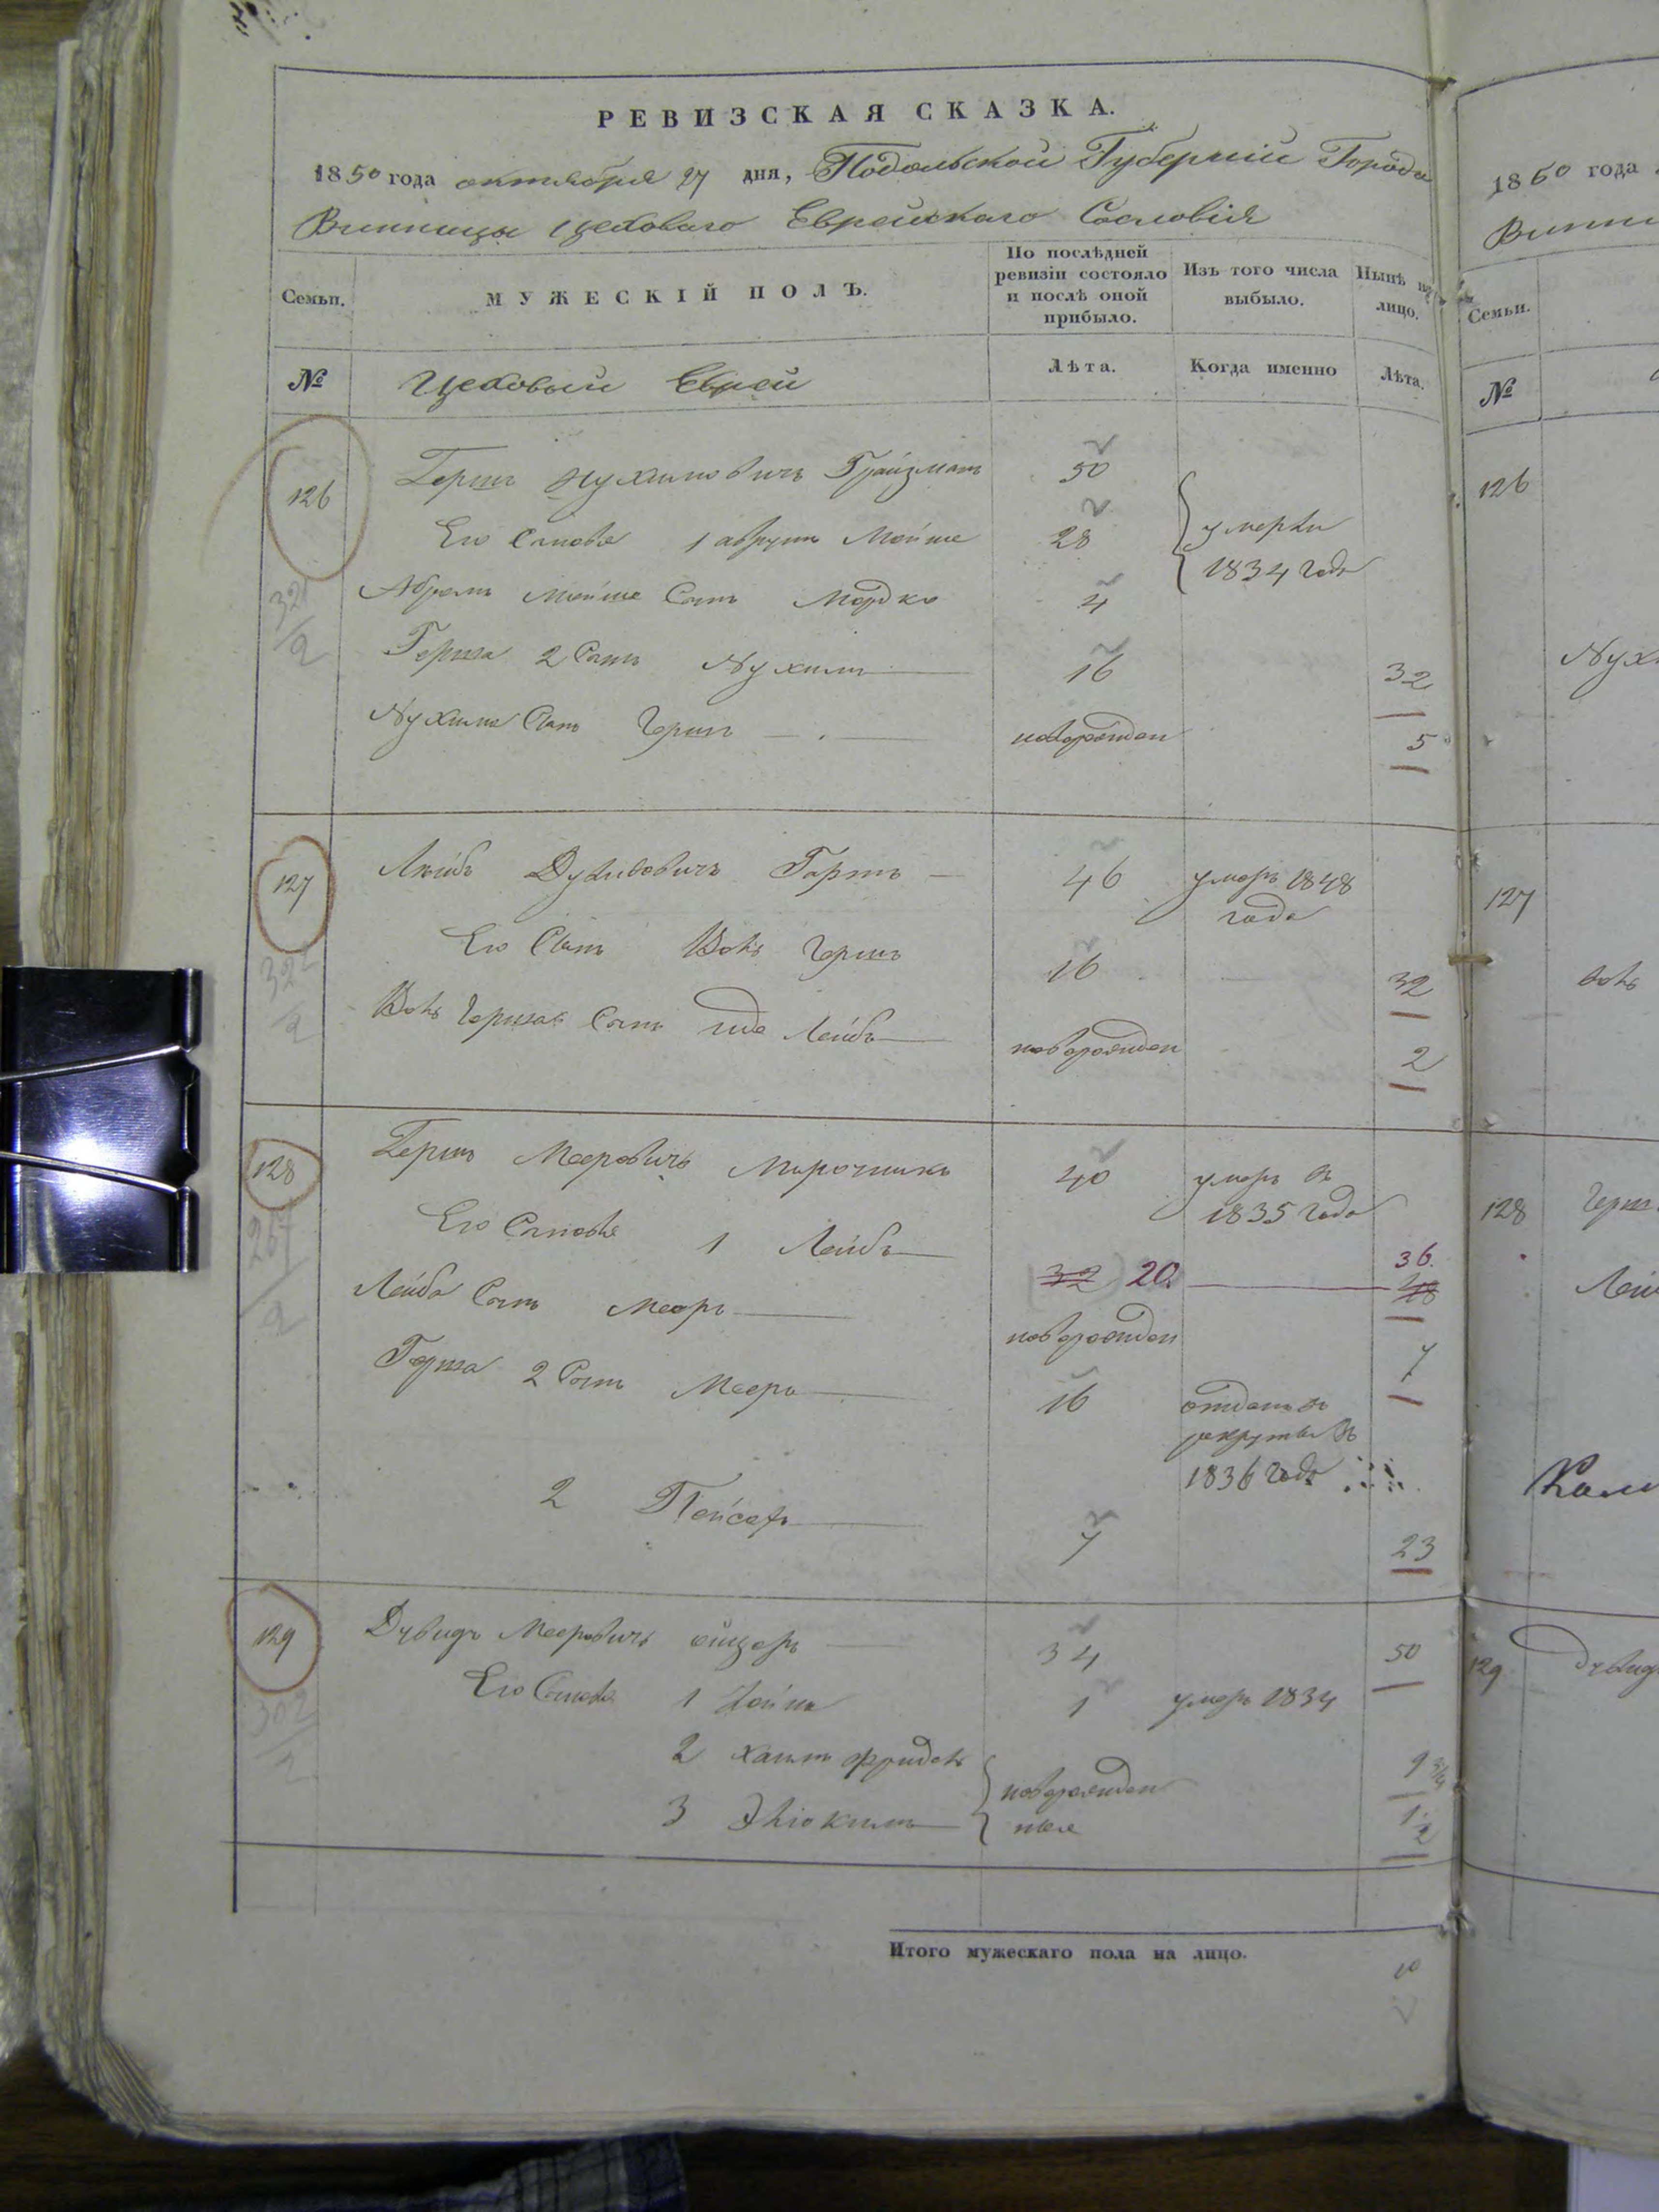 РЕВИЗСКАЯ СКАЗКА.
1850 года октября 27 дня, Подольской Губерніи Города
Винницы Цеховаго Еврейскаго Сословія
Семьи. МУЖЕСКІЙ ПОЛЪ. По послѣдней ревизіи состояло и послѣ оной прибыло. Изъ того числа выбыло. Нынѣ на лицо.
№ Цеховый Еврей Лѣта. Когда именно Лѣта.
126 Гершъ Нухимовичъ 50
Его Сыновья 1 Мойше 28 умерли
1834 года
Абрамъ Мойше Сынъ Мордко 4
321/2
Герша 2 Сынъ Нухимъ 16 32
Нухима Сынъ Гершъ новорожден 5
127 Лейбъ Дувидовичъ 46 умеръ 1848
года
Его Сынъ Волъ Гершъ 16 32
322/2
Волъ Герша Сынъ Лейбъ новорожден 2
128 Гершъ Мееровичъ Мирочникъ 40 умеръ въ
1835 года
Его Сыновья 1 Лейбъ 32 20. 36.
267/2
Лейба Сынъ Меоръ новорожден 7
Герша 2 Сынъ Мееръ 16 отданъ въ
рекруты въ
1836 года
2 Пейсахъ 7 23
129 Дувидъ Мееровичъ 34 50
Его Сыновья 1 1 умеръ 1834
302/2
2 Хаимъ 9
3 новорожден
ные
Итого мужескаго пола на лицо.
10
1860 года
Винни
Семьи.
№
126
Нухи
127
Волъ
128 Герш
Лей
129 Дувид